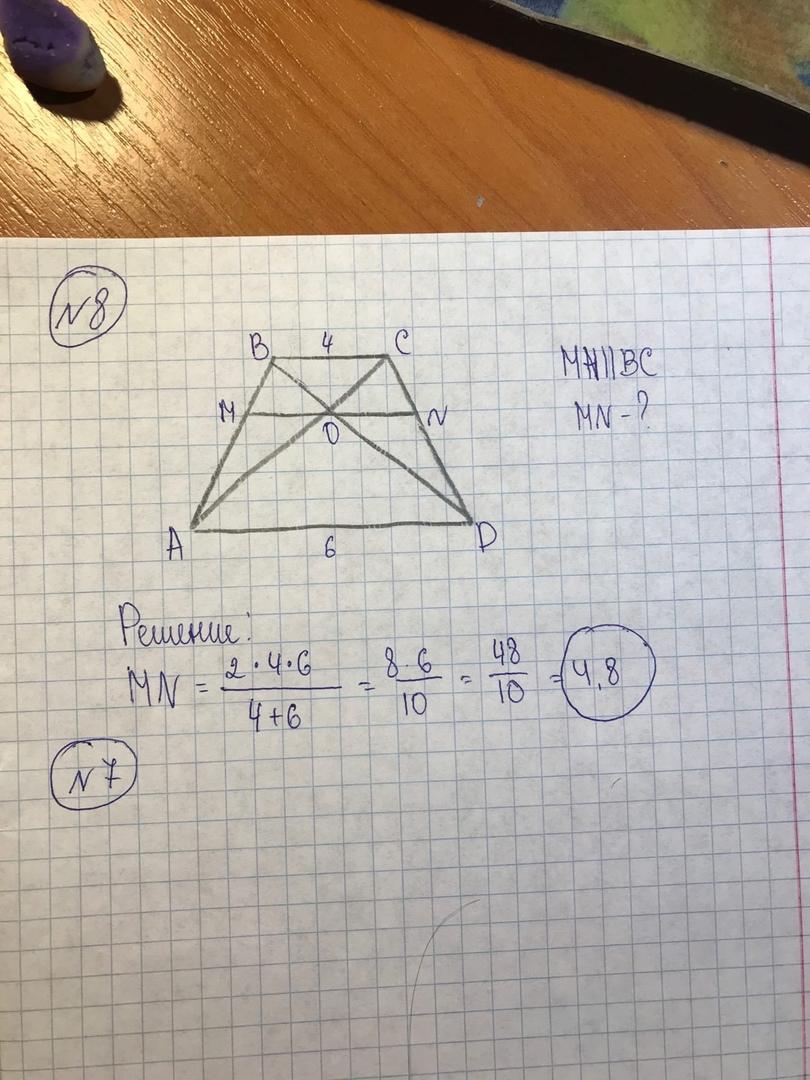 N8
B 4 C
M N
O
A D
6
MN||BC
MN - ?
Решение:
MN = 2·4·6 / 4+6 = 8·6 / 10 = 48 / 10 = 4,8
N7